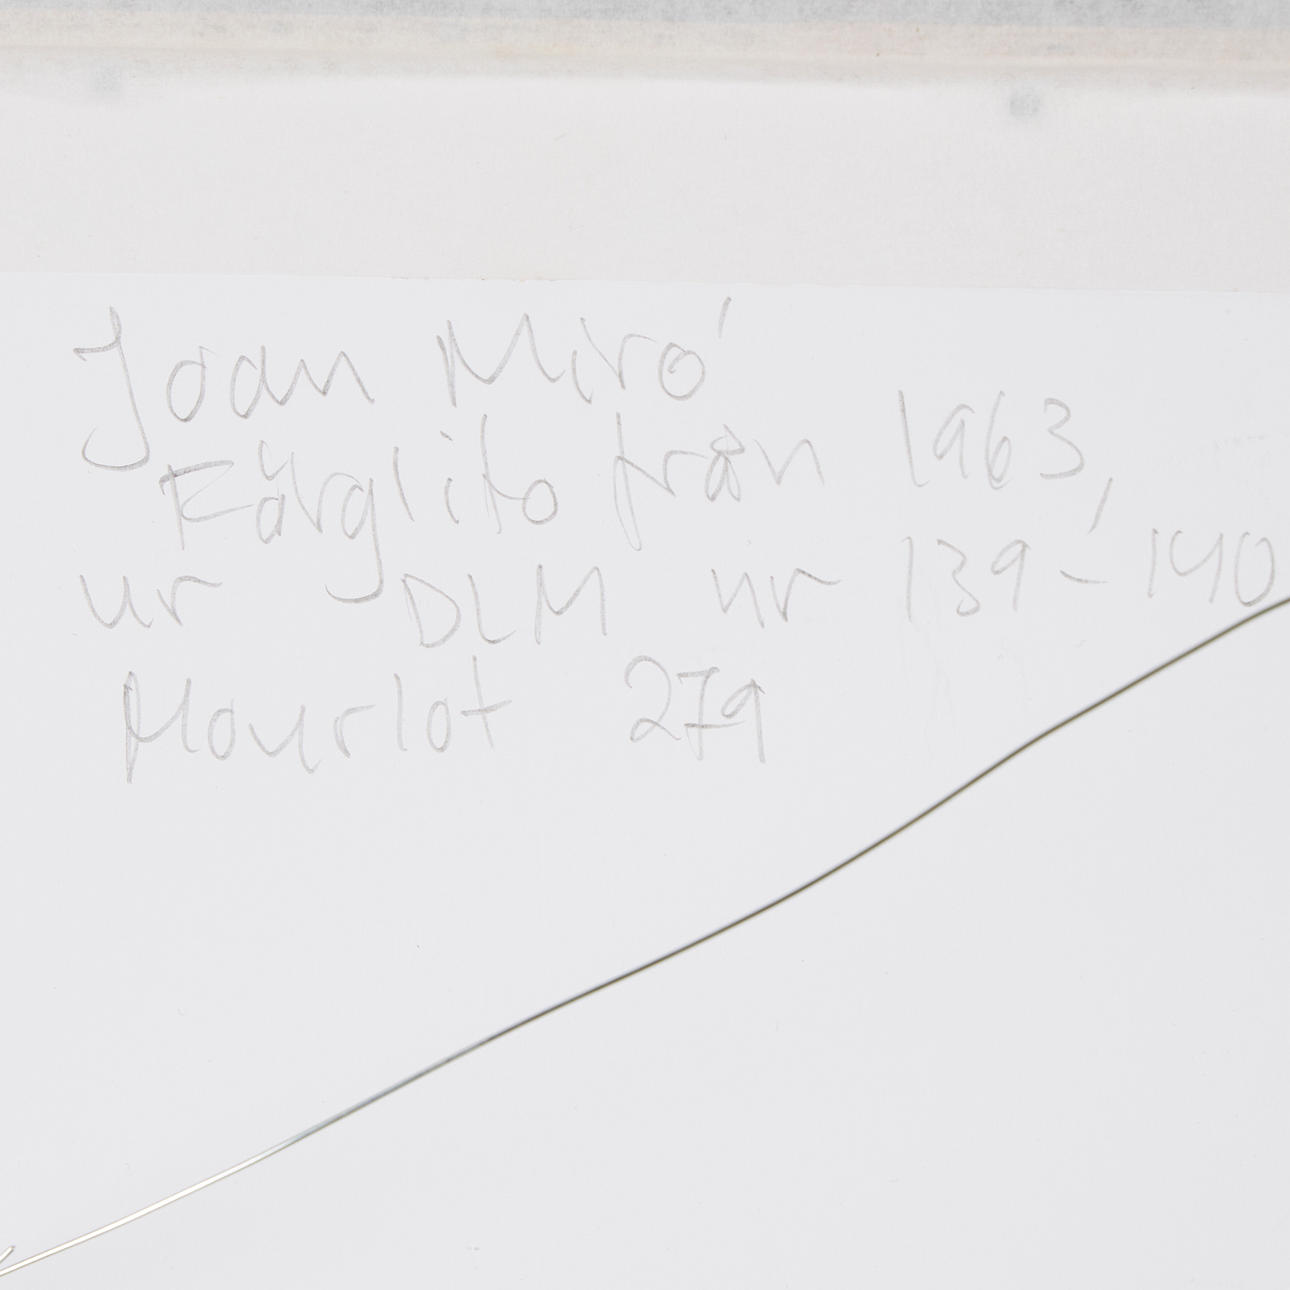 Joan Miró
Färglito från 1963,
ur DLM nr 139-140
Mourlot 279